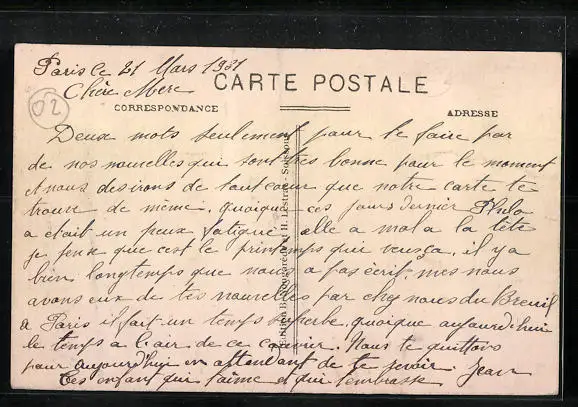 Paris le 21 Mars 1931
CARTE POSTALE
Chère Mère
02
CORRESPONDANCE
ADRESSE
Deux mots seulement pour te faire par
de nos nouvelles qui sont très bonne pour le moment
et nous desirons de tout coeur que notre carte te
trouve de même. quoique ces jours dernier
a etait un peux fatigue elle a mal a la tête
je peux que c'est le printemps qui veus ça. il y a
bien longtemps que nous a pas écrit. mes nous
avons eux de tes nouvelles par chez nous du Breuil
à Paris il fait un temps superbe. quoique aujourd'hui
le temps a l'air de ce couvrir. Nous te quittons
pour aujourd'hui en attendant de te revoir. Jean
Tes enfant qui t'aime et qui t'embrasse
Edition B. Nougarède et H. Lestrat, Soissons